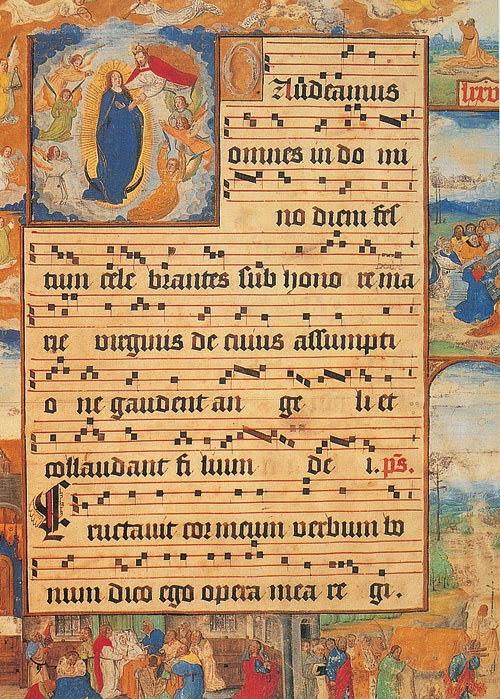 lxxv
Gaudeamus
omnes in do mi
no diem fes
tum cele brantes sub hono re ma
rie virginis de cuius assumpti
o ne gaudent an ge li et
collaudant fi lium de i. ps.
Eructauit cor meum verbum bo
num dico ego opera mea re gi.